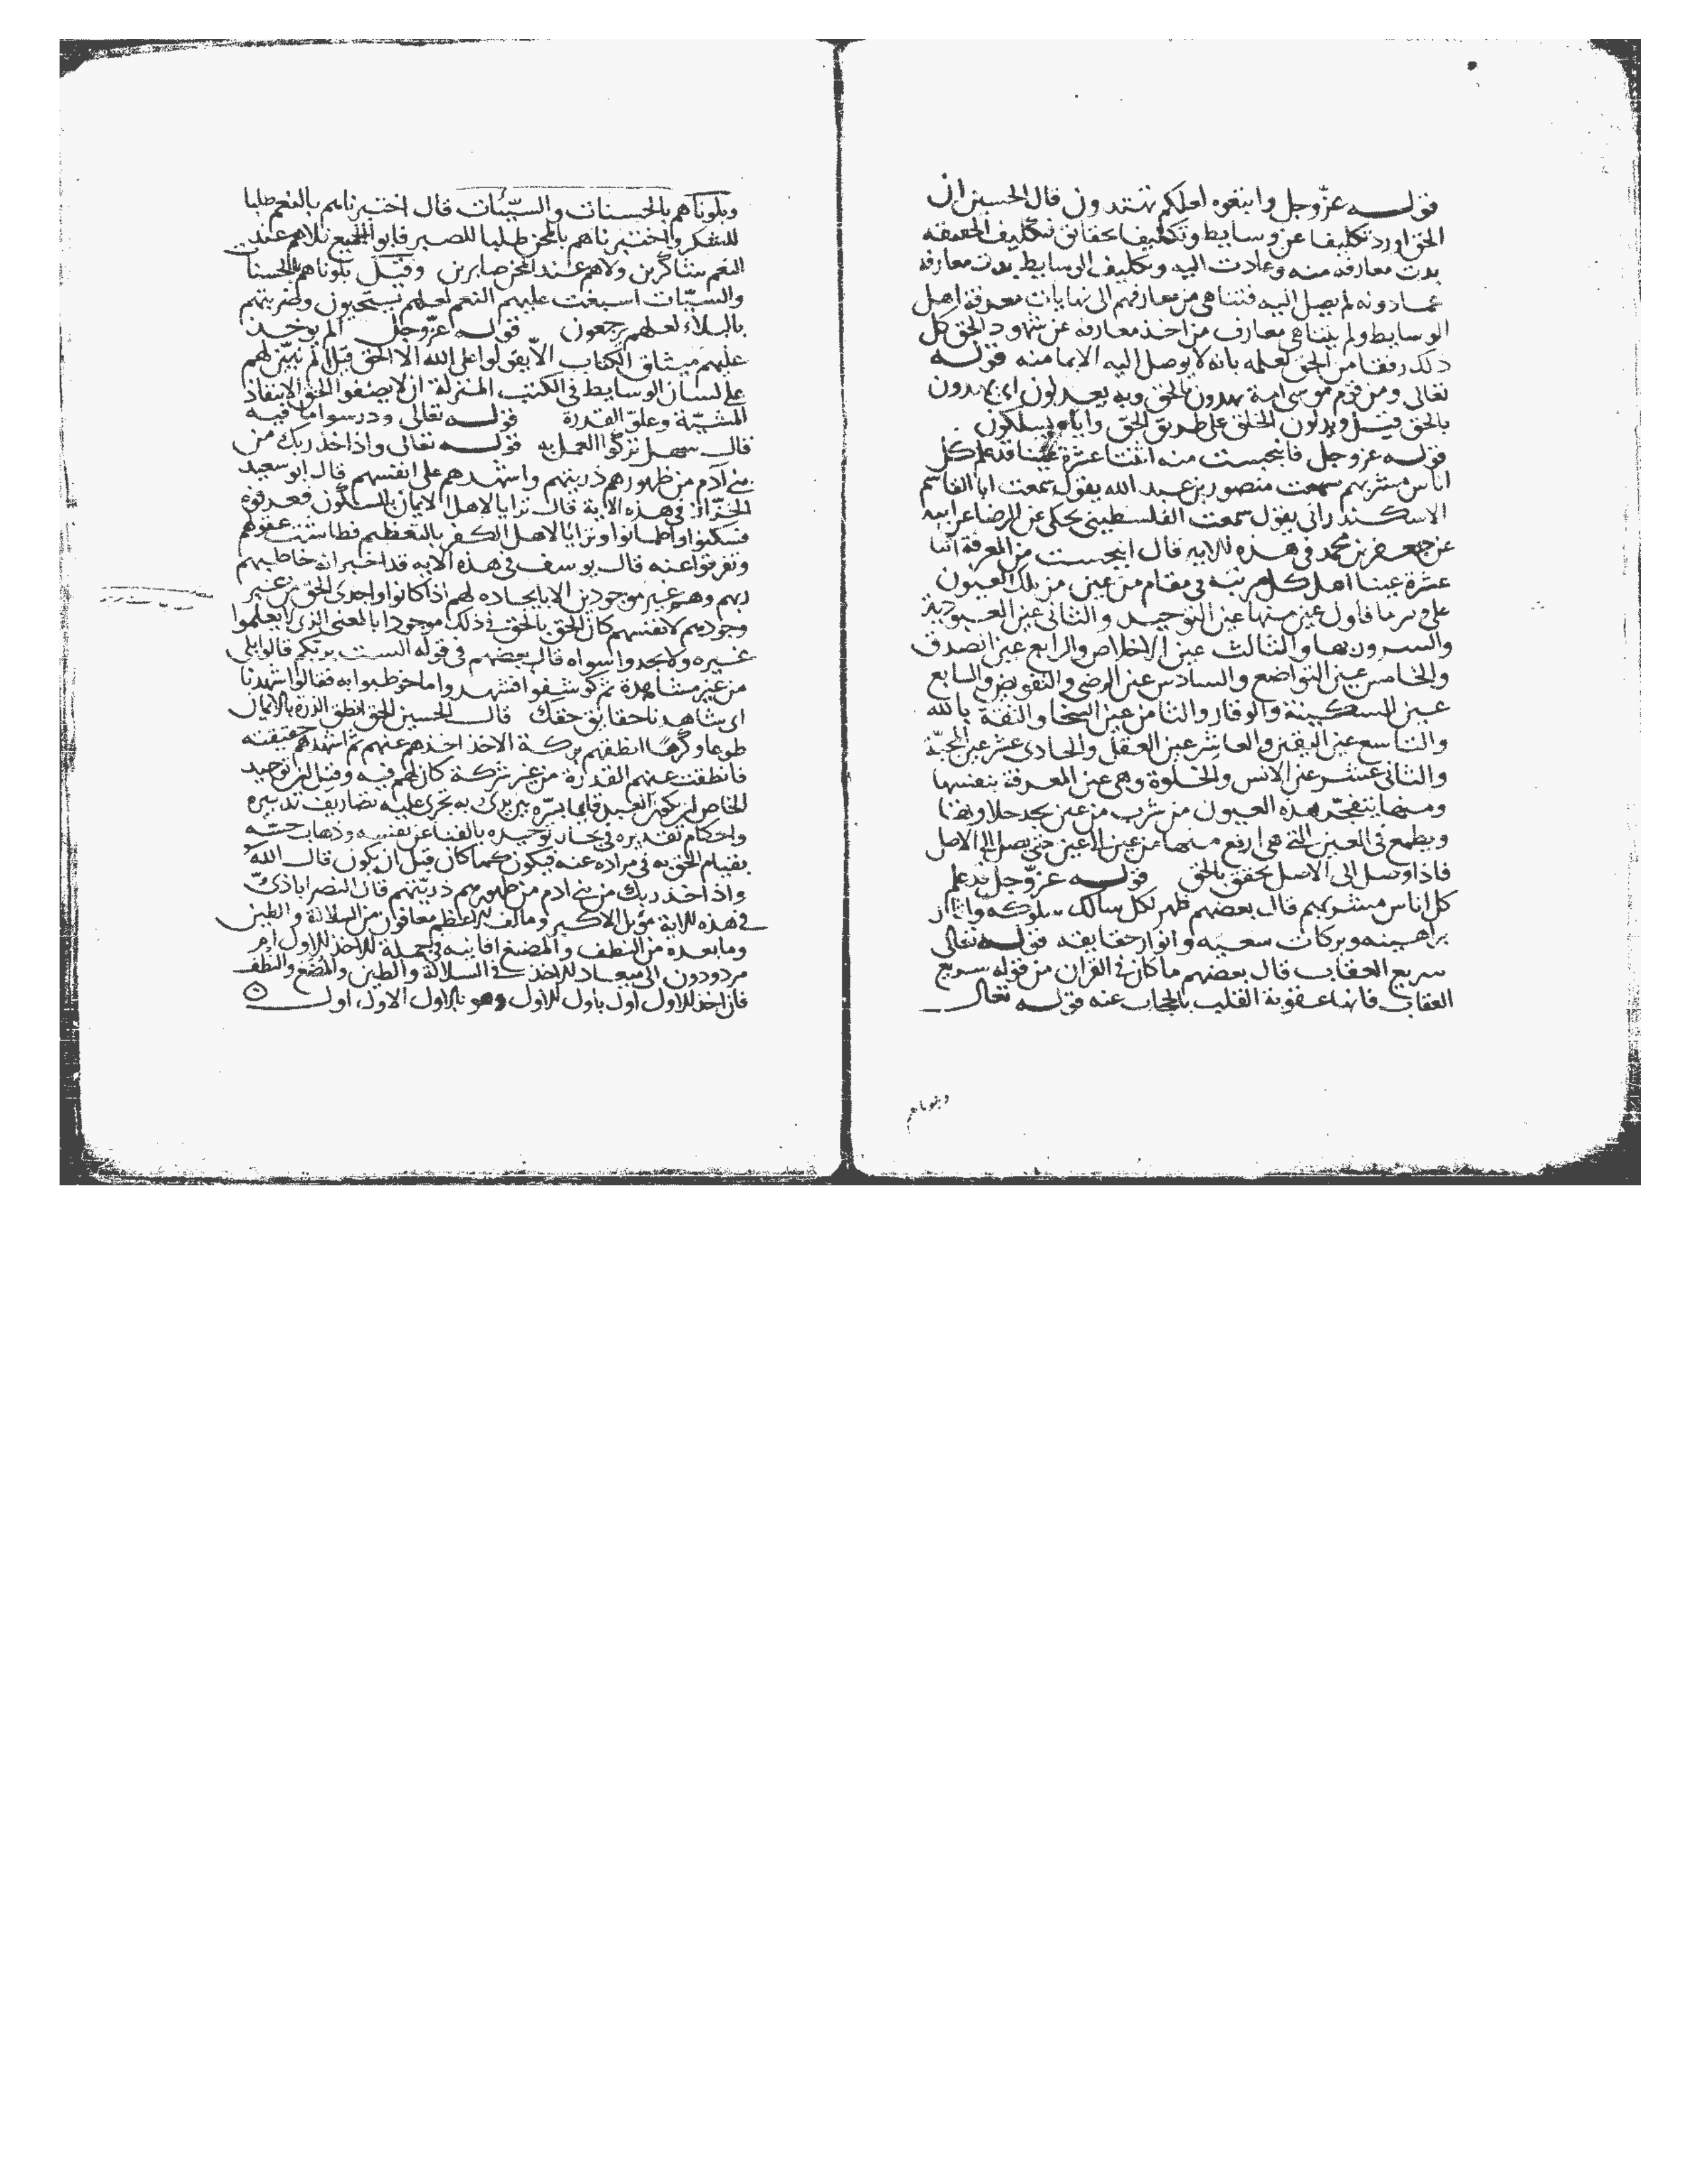 قوله عزّ وجل واتبعوه لعلكم تهتدون قال الحسين ان
الحق اورد تكليفا عن وسايط وتكليفا بحقائق فتكليف الحقيقة
بدت معارفه منه وعادت اليه وتكليف الوسايط بدت معارفه
عما دونه لم يصل اليه فتناهى من معارفهم الى نهايات معرفة اهل
الوسايط ولم يتناهى معارف من اخذ معارفه عن شهود الحق كل
ذلك رفقا من الحق لعلمه بانه لا يوصل اليه الا بما منه قوله
تعالى ومن قوم موسى امة يهدون بالحق وبه يعدلون اى يهدون
بالحق قيل ويدلون الخلق على طريق الحق واياه يسلكون
قوله عز وجل فانبجست منه اثنتا عشرة عينا قد علم كل
اناس مشربهم سمعت منصور بن عبد الله يقول سمعت ابا القاسم
الاسكندرانى يقول سمعت الفلسطينى يحكى عن الرضا عن ابيه
عن جعفر بن محمد فى هذه الاية قال انبجست من المعرفة اثنا
عشرة عينا اهل كل مرتبة فى مقام من عين من تلك العيون
على قدرها فاول عين منها عين التوحيد والثانى عين العبودية
والسرور بها والثالث عين الاخلاص والرابع عين الصدق
والخامس عين التواضع والسادس عين الرضى والتفويض والسابع
عين السكينة والوقار والثامن عين السخا والثقة بالله
والتاسع عين اليقين والعاشر عين العقل والحادى عشر عين المحبة
والثانى عشر عين الانس والخلوة وهى عين المعرفة بنفسها
ومنها يتفجر هذه العيون من شرب من عين يجد حلاوتها
ويطمع فى العين التى هى ارفع منها من عين الى عين حتى يصل الى الاصل
فاذا وصل الى الاصل تحقق بالحق قوله عزّ وجل قد علم
كل اناس مشربهم قال بعضهم ظهر لكل سالك سلوكه واثار
براهينه وبركات سعيه وانوار حقايقه قوله تعالى
سريع العقاب قال بعضهم ما كان فى القران من قوله سريع
العقاب فانها عقوبة القلب بالحجاب عنه قوله تعالى
وبلوناهم
وبلوناهم بالحسنات والسيّئات قال اختبرناهم بالنعم طلبا
للشكر واختبرناهم بالمحن طلبا للصبر فابوا الجميع فلا هم عند
النعم شاكرين ولا هم عند المحن صابرين وقيل بلوناهم بالحسنات
والسيّات اسبغت عليهم النعم لعلهم يستحيون وضربتهم
بالبلاء لعلهم يرجعون قوله عزّ وجل الم يوخذ
عليهم ميثاق الكتاب الّا يقولوا على الله الا الحق قيل الم نبيّن لهم
على لسان الوسايط فى الكتب المنزلة ان لا يصفوا الحق الا بنفاذ
المشيّة وعلوّ القدرة قوله تعالى ودرسوا ما فيه
قال سهل تركوا العمل به قوله تعالى واذ اخذ ربك من
بنى آدم من ظهورهم ذريتهم واشهدهم على انفسهم قال ابو سعيد
الخرّاز فى هذه الاية قال ترايا لاهل الايمان بالسكون فعرفوه
فسكنوا واطمانوا وترايا لاهل الكفر بالتعظيم فطاشت عقولهم
وتفرقوا عنه قال يوسف فى هذه الاية قد اخبر انه خاطبهم
ربهم وهم غير موجودين الا بايجاده لهم اذ كانوا واجدى الحق من غير
وجودهم لانفسهم كان الحق بالحق فى ذلك موجودا بالمعنى الذى لا يعلموا
غيره ولا يجدوا سواه قال بعضهم فى قوله الست بربكم قالوا بلى
من غير مشاهدة ثم كوشفوا فشهدوا ما خوطبوا به فقالوا شهدنا
اى شاهدنا حقايق حقك قال الحسين الحق انطق الذرة بالايمان
طوعا وكرها انطقهم بركة الاخذ اخذهم عنهم ثم اشهدهم حقيقته
فانطقت عنهم القدرة من غير شركة كان لهم فيه وقيل ان توحيد
الخاص ان يكون العبد قايما بسرّه بين يدى ربه تجرى عليه تصاريف تدبيره
واحكام تقديره فى بحار توحيده بالفنا عن نفسه وذهاب حسّه
بقيام الحق به فى مراده عنه فيكون كما كان قبل ان يكون قال الله
واذ اخذ ربك من بنى ادم من ظهورهم ذريّتهم قال النصراباذىّ
فى هذه الاية من السلالة والطين
وما بعده من النطف والمضغ فى جملة الاخذ الاول
مردودون الى ميعاد الاخذ فى السلالة والطين والمضغ والنطف
فان اخذ الاول اول باول الاول وهو بالاول الاول اول